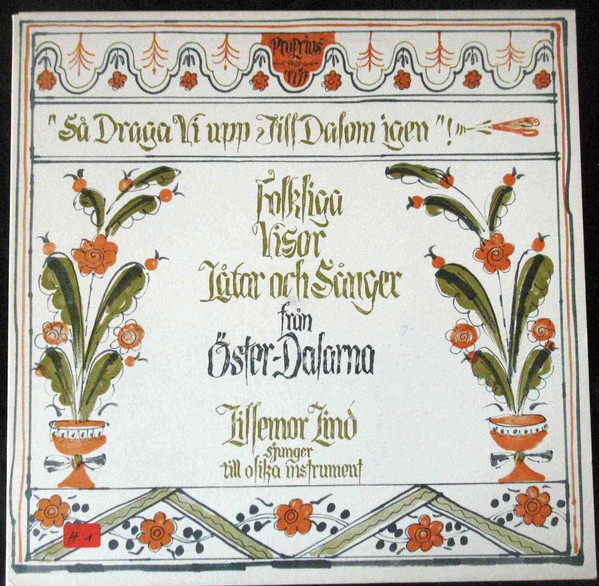 Proprius
"Så Draga Vi upp Till Dalom igen"!
Folkliga
Visor
Låtar och Sånger
från
Öster-Dalarna
Lillemor Lind
sjunger
till olika instrument
# 1